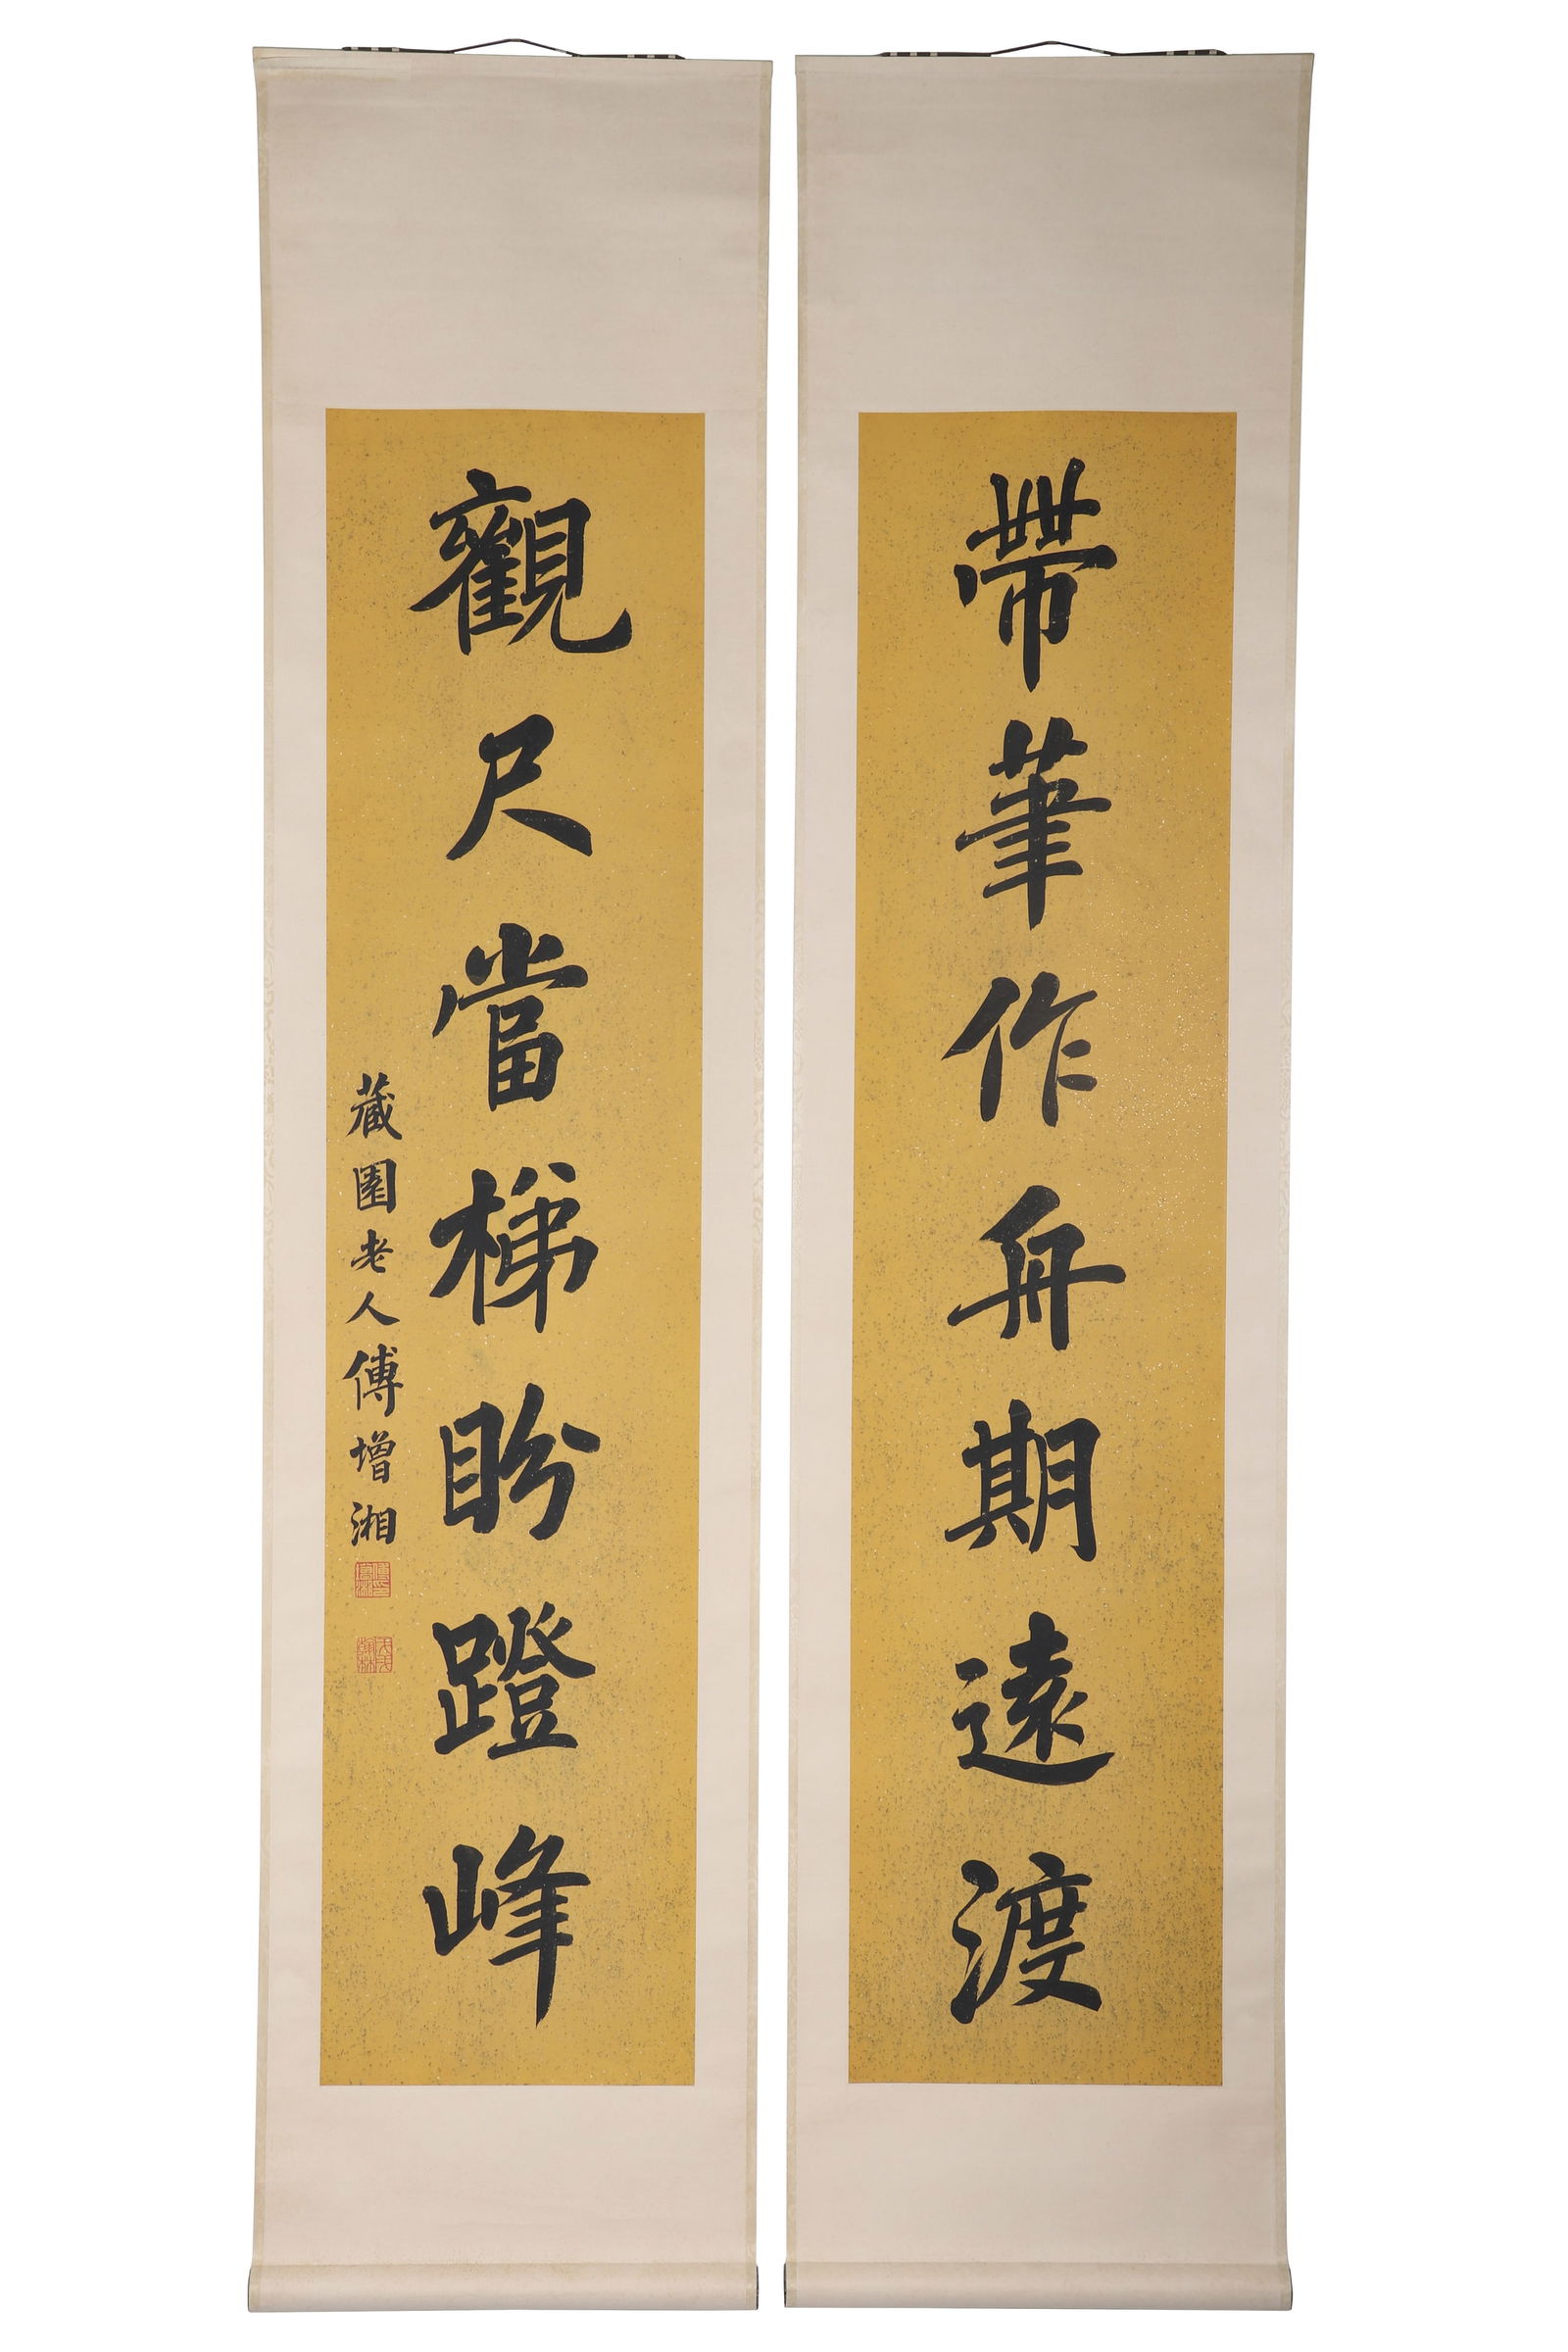 帶筆作舟期遠渡
觀尺當梯盼蹬峰
藏園老人傅增湘